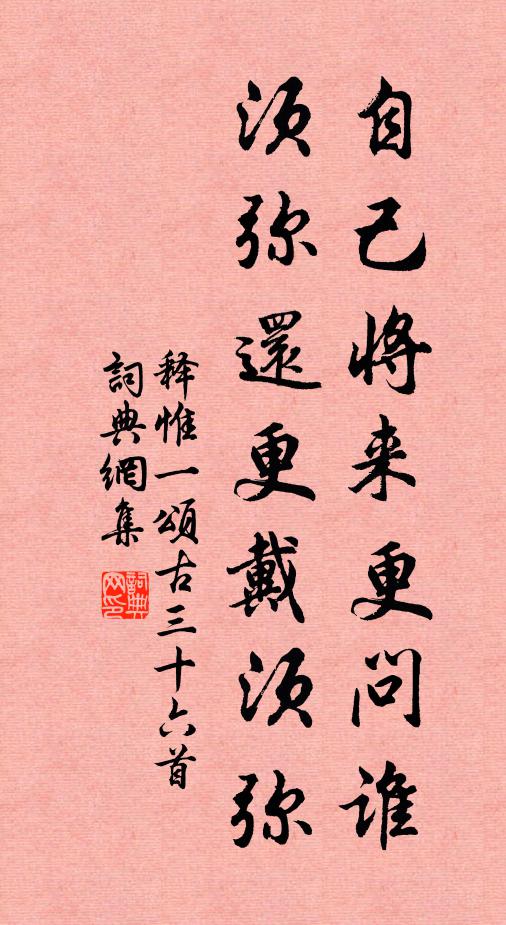 自己将来更问谁
须弥還更戴须弥
释惟一頌古三十六首
詞典網集
詞典网印